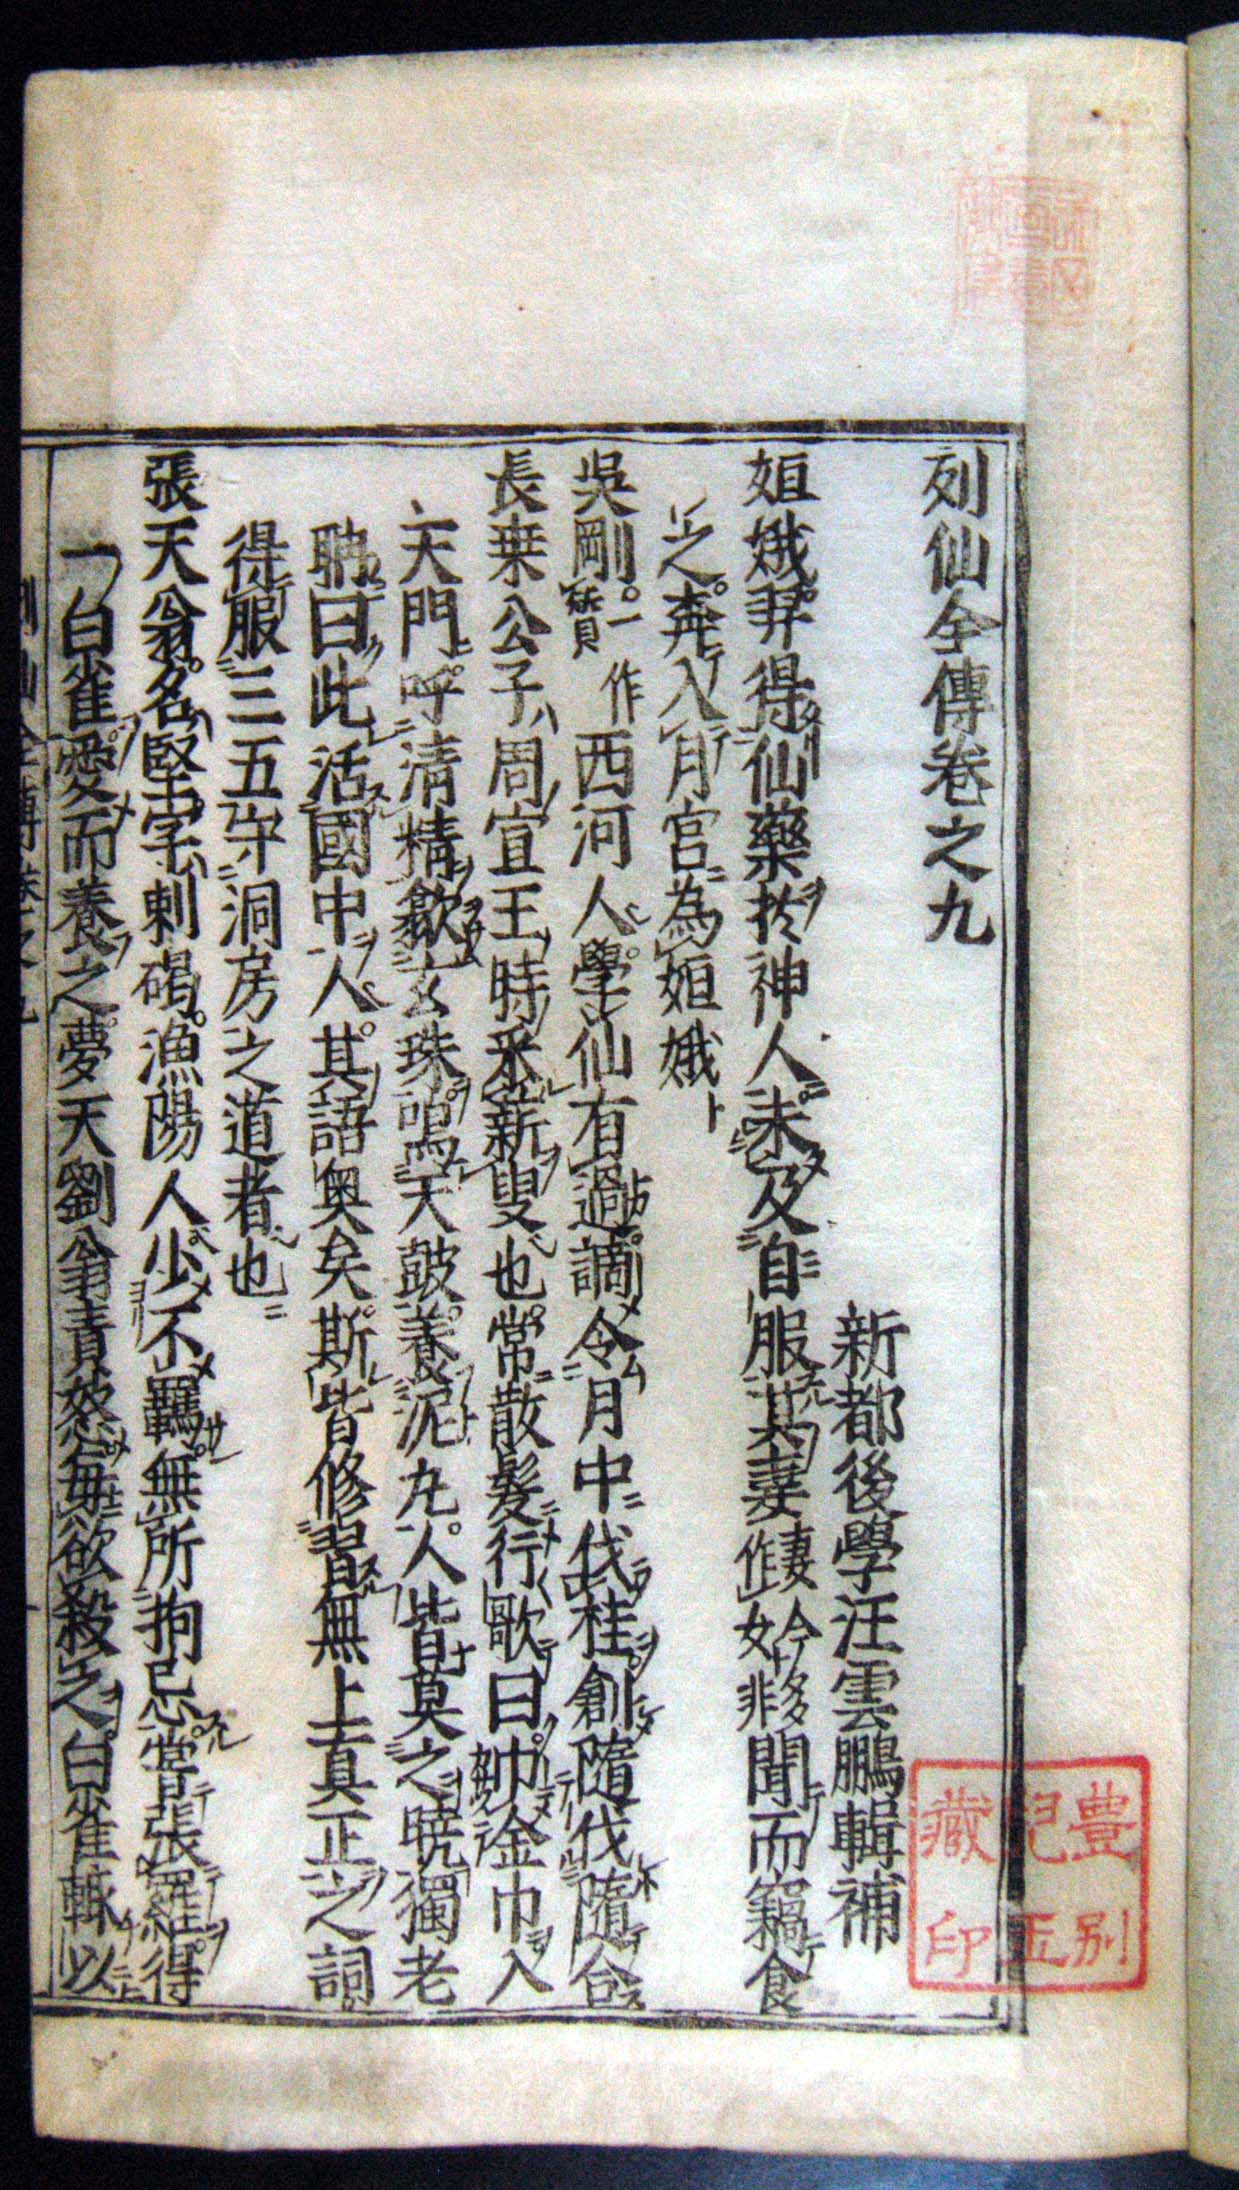 列仙全傳卷之九
新都後學汪雲鵬輯補
姮娥羿得仙藥於神人未及自服其妻妻今作女移非聞而竊食
之奔入月宮為姮娥
吳剛一作質西河人學仙有過謫令月中伐桂創隨伐隨合
長桒公子周宣王時釆薪叟也常散髮行歌曰巾金巾入
天門呼清精歙玄珠鳴天鼓養泥丸人皆莫之曉獨老
聃曰此活國中人其語奧矣斯皆修習無上真正之詞
得服三五守洞房之道者也
張天翁名堅字刺碣漁陽人少不羈無所拘忌嘗張羅得
一白雀愛而養之夢天劉翁責怒每欲殺之白雀輙以
豊
別
藏印